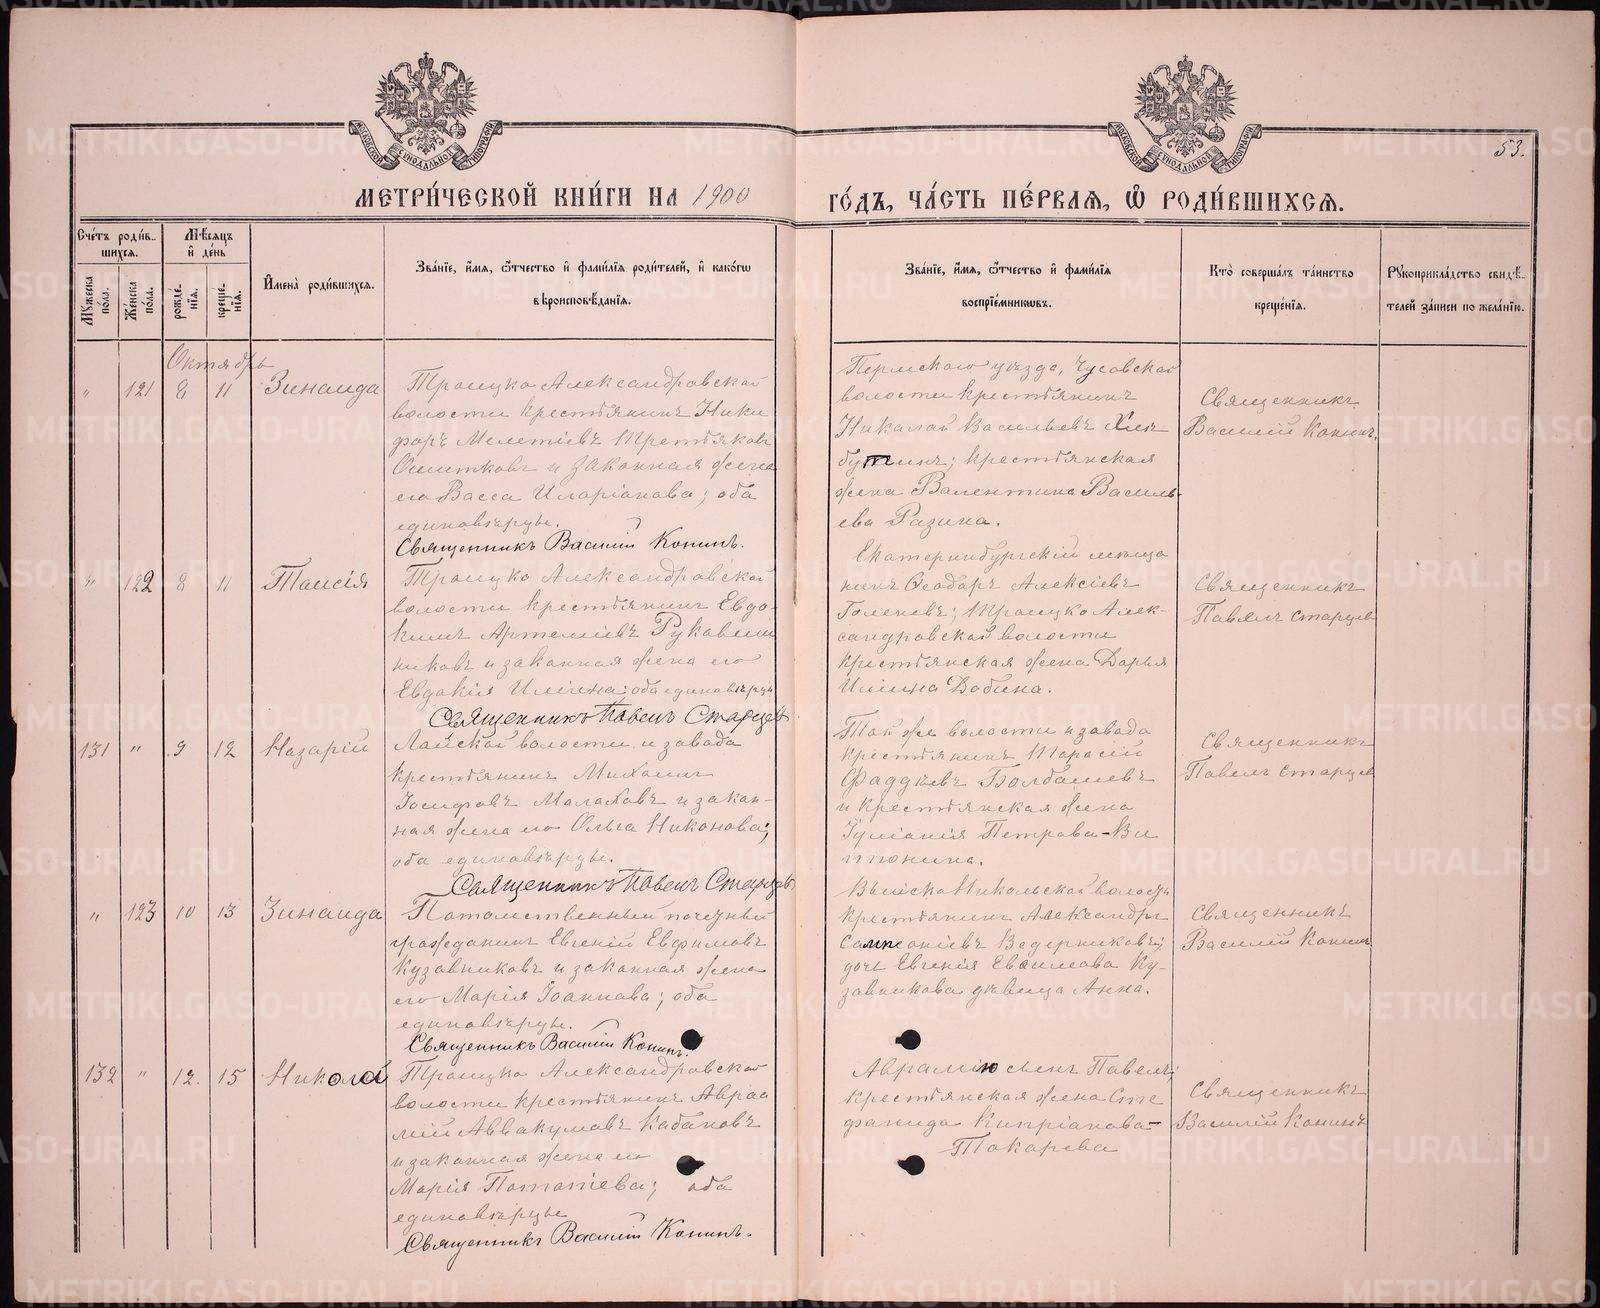 МЕТРИ́ЧЕСКОЙ КНИ́ГИ НА 1900
ГО́ДЪ, ЧА́СТЬ ПЕ́РВАѦ, Ѿ РОДИ́ВШИХСѦ.
53.
Сче́тъ роди́в-
шихсѧ.
Мѣсѧцъ
и҆ де́нь
Мꙋжеска
пола.
Же́нска
по́ла.
рожде́-
нїѧ.
креще-
нїѧ.
И҆мена̀ роди́вшихсѧ.
Зва́нїе, и҆́мѧ, ѻ҆́тчество и҆ фами́лїѧ роди́телей, и҆ како́гѡ
вѣроисповѣ́данїѧ.
Зва́нїе, и҆́мѧ, ѻ҆́тчество и҆ фами́лїѧ
воспрїе́мникѡвъ.
Кто̀ соверша́лъ та́инство
креще́нїѧ.
Рꙋкоприкла́дство свидѣ́-
телей за́писи по жела́нїю.
Октябрь
" 121 8 11 Зинаида
Троицко Александровской
волости крестьянинъ Ники
форъ Мелетіевъ Третьяковъ
и законная жена
его Васса Иларіонова; оба
единовѣрцы.
Священникъ Василій Конинъ.
Пермскаго уѣзда, Чусовской
волости крестьянинъ
Николай Васильевъ Хле
бутинъ; крестьянская
жена Валентина Василь-
ева Разина.
Священникъ
Василій Конинъ.
" 122 8 11 Таисія
Троицко Александровской
волости крестьянинъ Евдо-
кимъ Артеміевъ Рукавиш
никовъ и законная жена его
Евдокія Иліина; оба единовѣрцы
Священникъ Павелъ Старцевъ
Екатеринбургскій мѣща
нинъ Ѳеодоръ Алексіевъ
Голеневъ; Троицко Алек-
сандровской волости
крестьянская жена Дарья
Иліина Бабина.
Священникъ
Павелъ Старцев
131 " 9 12 Назарій
Лайской волости и завода
крестьянинъ Михаилъ
Іосифовъ Малаховъ и закон-
ная жена его Ольга Никонова;
оба единовѣрцы.
Священникъ Павелъ Старцевъ
Той же волости и завода
крестьянинъ Тарасій
Фаддѣевъ Болбашевъ
и крестьянская жена
Іуліанія Петрова-Ви
тюнина.
Священникъ
Павелъ Старцев
" 123 10 13 Зинаида
Потомственный почетный
гражданинъ Евгеній Евфимовъ
Кузовниковъ и законная жена
его Марія Іоаннова; оба
единовѣрцы.
Священникъ Василій Конинъ.
Выйско Никольской волости
крестьянинъ Александръ
Сампсоніевъ Ведерниковъ;
дочь Евгенія Евфимова Ку-
зовникова дѣвица Анна.
Священникъ
Василій Конинъ
132 " 12. 15 Николай
Троицко Александровской
волости крестьянинъ Авраа
мій Аввакумовъ Кабановъ
и законная жена его
Марія Потапіева; оба
единовѣрцы
Священникъ Василій Конинъ.
Авраамію сынъ Павелъ;
крестьянская жена Сте
фанида Кипріанова-
Токарева
Священникъ
Василій Конинъ